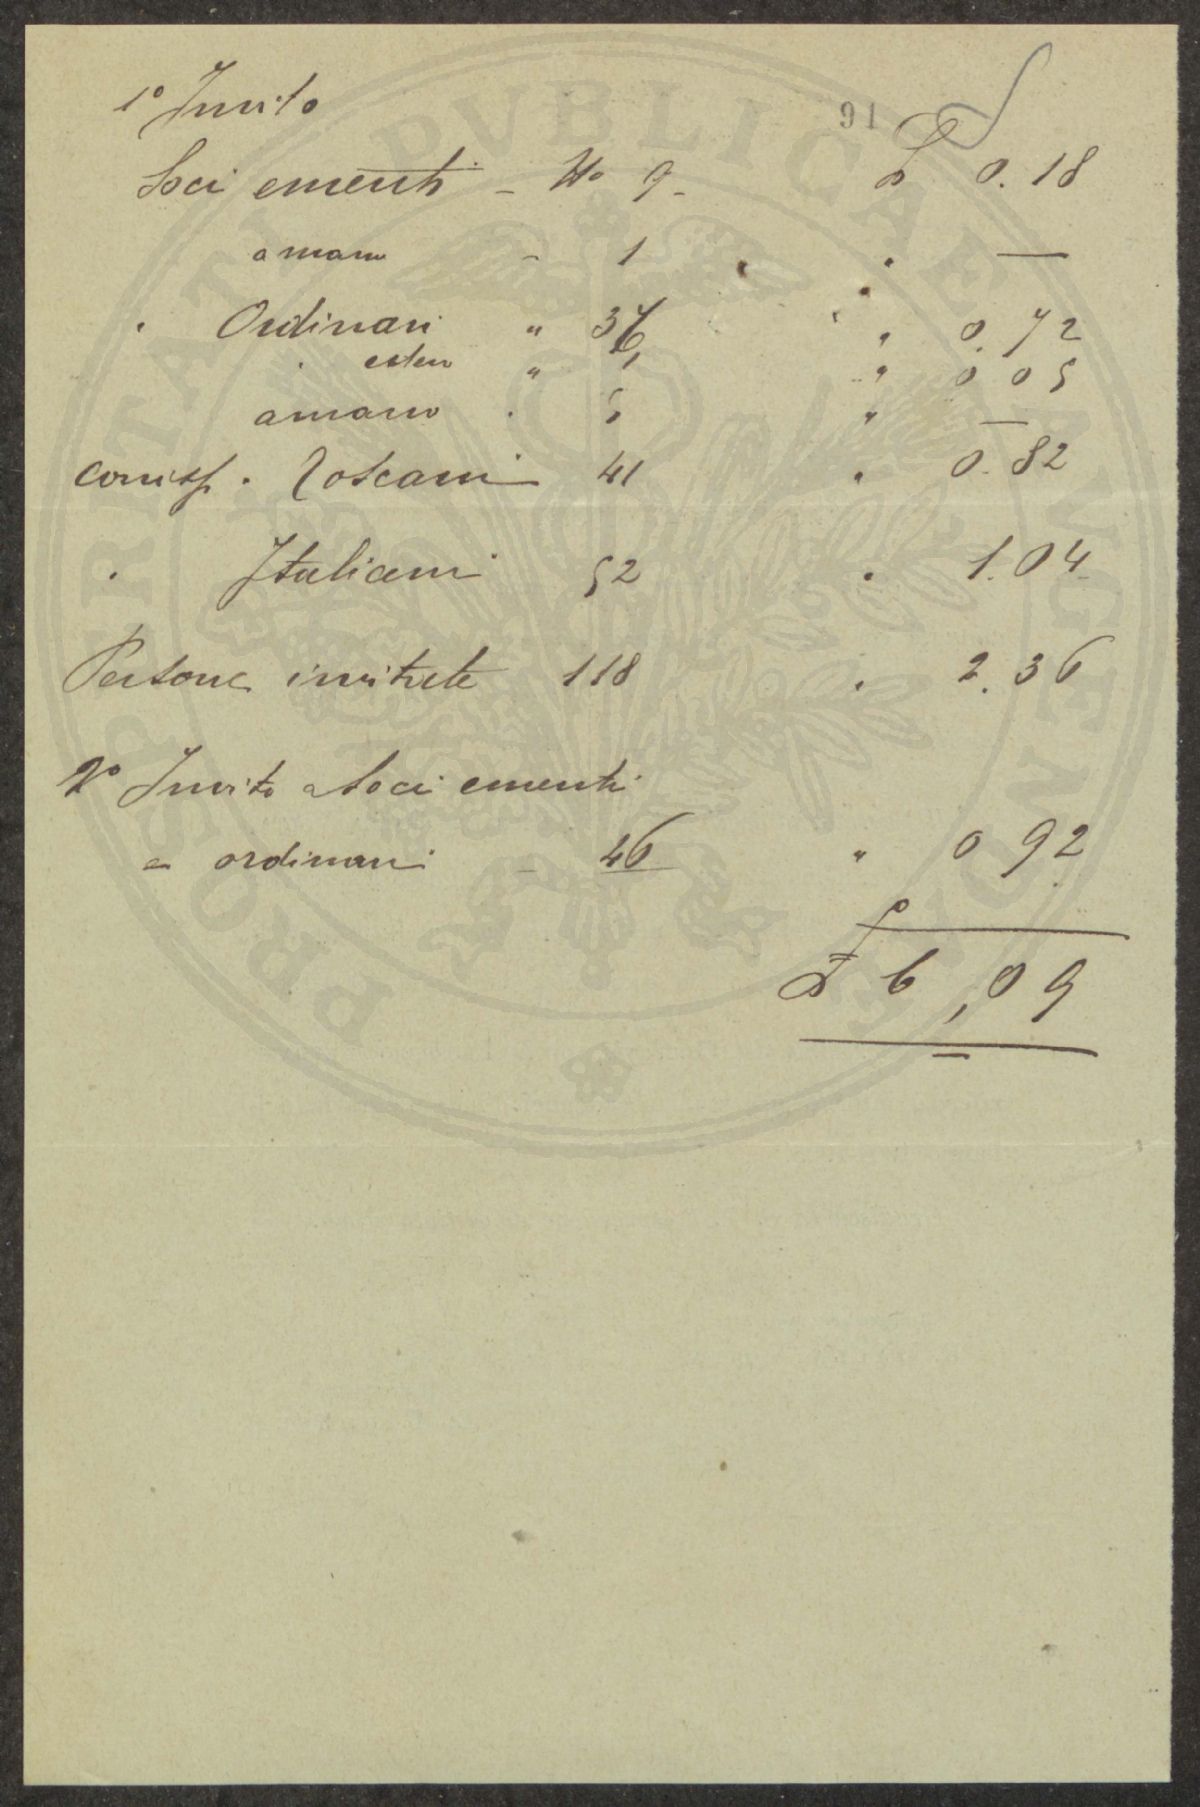 91
1° Invito
Soci emeriti - N° 9 - £ 0.18
a mano - 1 " —
" Ordinari " 36 " 0.72
" esteri " 1 " 0 05
a mano . 5 " —
Corrisp. Toscani 41 " 0.82
" Italiani 52 " 1.04
Persone invitate 118 " 2.36
2° Invito a Soci emeriti
e ordinari - 46 " 0 92
£ 6,09
PROSPERITATI PVBLICAE AVGENDAE